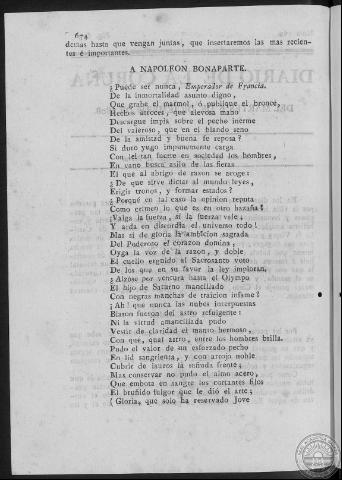 674
demas hasta que vengan juntas, que insertaremos las mas recien-
tes é importantes.
A NAPOLEON BONAPARTE.
¿Puede ser nunca, Emperador de Francia,
De la inmortalidad asunto digno,
Que grabe el marmol, ó publique el bronce,
Hechos atroces, que alevosa mano
Descargue impía sobre el pecho inerme
Del valeroso, que en el blando seno
De la amistad y buena fe reposa?
Si duro yugo impunemente carga
Con lei tan fuerte en sociedad los hombres,
En vano busca asilo de las fieras
El que al abrigo de razon se aroge:
¿De que sirve dictar al mundo leyes,
Erigir tronos, y formar estados?
¿Porqué en tal caso la opinion reputa
Como crimen lo que es en otro hazaña?
¡Valga la fuerza, si la fuerza vale;
Y arda en discordia el universo todo!
Mas si de gloria la ambicion sagrada
Del Poderoso el corazon domina,
Oyga la voz de la razon, y doble
El cuello erguido al Sacrosanto voto
De los que en su favor la ley imploran.
¿Alzose por ventura hasta el Olympo
El hijo de Saturno mancillado
Con negras manchas de traicion infame?
¡Ah! que nunca las nubes interpuestas
Blason fueron del astro refulgente:
Ni la virtud amancillada pudo
Vestir de claridad el manto hermoso,
Con que, qual astro, entre los hombres brilla.
Pudo el valor de un esforzado pecho
En lid sangrienta, y con arrojo noble
Cubrir de lauros la sañuda frente;
Mas conservar no pudo el limo acero,
Que embota en sangre los cortantes filos
El bruñido fulgor que le dió el arte;
(Gloria, que solo ha reservado Jove